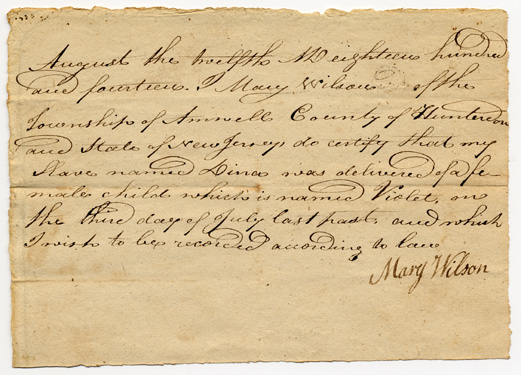 August the twelfth M eighteen hundred
and fourteen. I Mary Wilson of the
Township of Amwell County of Hunterdon
and State of New Jersey do certify that my
Slave named Dina was delivered of a fe
male child which is named Violet, on
the third day of July last past, and which
I wish to be recorded according to law
Mary Wilson